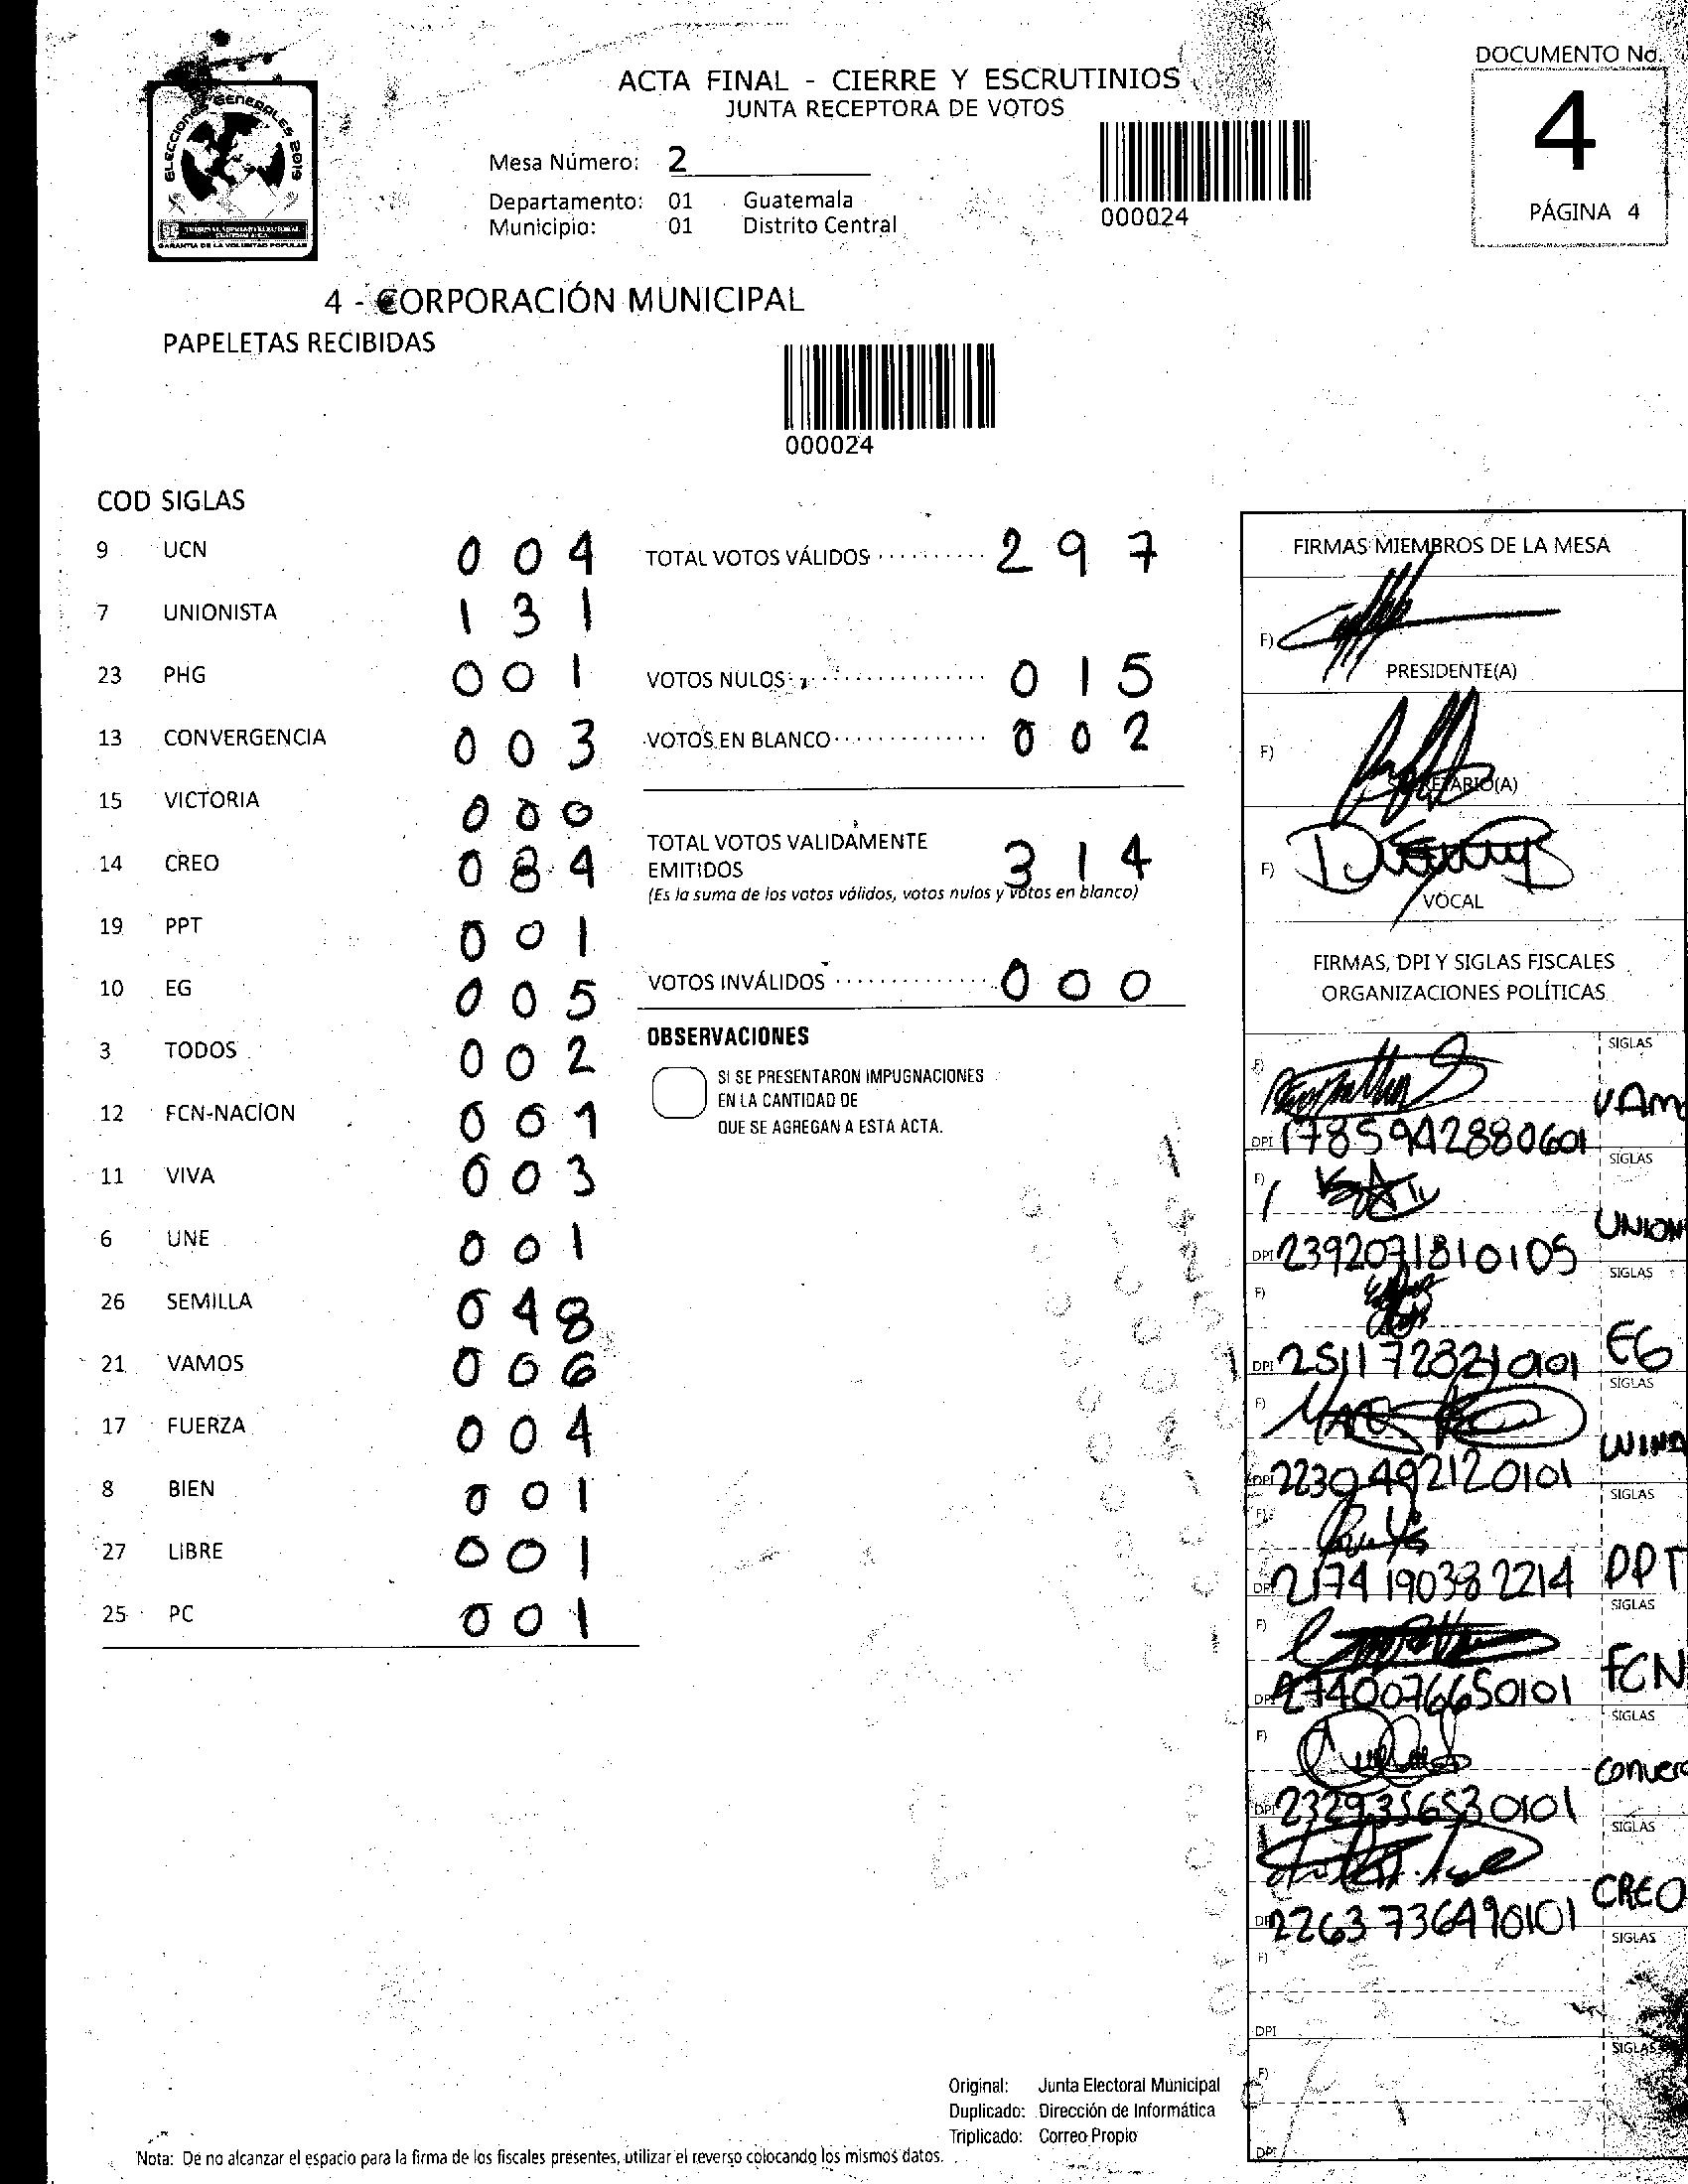 ACTA FINAL - CIERRE Y ESCRUTINIOS
JUNTA RECEPTORA DE VOTOS
DOCUMENTO No.
4
PÁGINA 4
ELECCIONES GENERALES 2019
GARANTIA DE LA VOLUNTAD POPULAR
Mesa Número: 2
Departamento: 01 Guatemala
Municipio: 01 Distrito Central
000024
4 - CORPORACIÓN MUNICIPAL
PAPELETAS RECIBIDAS
000024
COD SIGLAS
9 UCN 0 0 4
7 UNIONISTA 1 3 1
23 PHG 0 0 1
13 CONVERGENCIA 0 0 3
15 VICTORIA 0 0 0
14 CREO 0 8 4
19 PPT 0 0 1
10 EG 0 0 5
3 TODOS 0 0 2
12 FCN-NACION 0 0 1
11 VIVA 0 0 3
6 UNE 0 0 1
26 SEMILLA 0 4 8
21 VAMOS 0 0 6
17 FUERZA 0 0 4
8 BIEN 0 0 1
27 LIBRE 0 0 1
25 PC 0 0 1
TOTAL VOTOS VÁLIDOS 2 9 7
VOTOS NULOS 0 1 5
VOTOS EN BLANCO 0 0 2
TOTAL VOTOS VALIDAMENTE
EMITIDOS 3 1 4
(Es la suma de los votos válidos, votos nulos y votos en blanco)
VOTOS INVÁLIDOS 0 0 0
OBSERVACIONES
SI SE PRESENTARON IMPUGNACIONES
EN LA CANTIDAD DE
QUE SE AGREGAN A ESTA ACTA.
FIRMAS MIEMBROS DE LA MESA
F)
PRESIDENTE(A)
F)
SECRETARIO(A)
F)
VOCAL
FIRMAS, DPI Y SIGLAS FISCALES
ORGANIZACIONES POLÍTICAS
F) SIGLAS
VAMO
DPI 1785942880601
F) SIGLAS
UNION
DPI 2392071810105
F) SIGLAS
EG
DPI
F) SIGLAS
DPI 2230492120101
F) SIGLAS
PPT
DPI 2174190382214
F) SIGLAS
FCN
DPI 2740076650101
F) SIGLAS
Converg
DPI 2329356530101
SIGLAS
CREO
DPI 2263736490101
F) SIGLAS
DPI
F) SIGLAS
DPI
Original: Junta Electoral Municipal
Duplicado: Dirección de Informática
Triplicado: Correo Propio
Nota: De no alcanzar el espacio para la firma de los fiscales presentes, utilizar el reverso colocando los mismos datos.